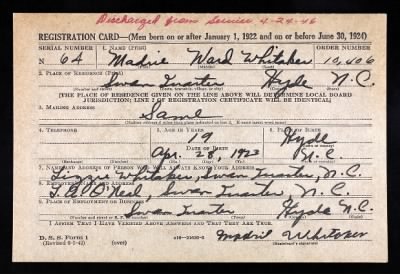 Discharged from Service 4-24-46
REGISTRATION CARD—(Men born on or after January 1, 1922 and on or before June 30, 1924)
SERIAL NUMBER 1. NAME (Print) ORDER NUMBER
N 64 Ward Whitaker 10,406
2. PLACE OF RESIDENCE (Print)
Swan Quarter Hyde N.C.
(Number and street) (Town, township, village, or city) (County) (State)
[THE PLACE OF RESIDENCE GIVEN ON THE LINE ABOVE WILL DETERMINE LOCAL BOARD
JURISDICTION; LINE 2 OF REGISTRATION CERTIFICATE WILL BE IDENTICAL]
3. MAILING ADDRESS
Same
4. TELEPHONE 5. AGE IN YEARS 6. PLACE OF BIRTH
19 Hyde
DATE OF BIRTH
Apr. 28, 1923 N.C.
7. NAME AND ADDRESS OF PERSON WHO WILL ALWAYS KNOW YOUR ADDRESS
Lizzie Whitaker, Swan Quarter, N.C.
8. EMPLOYER'S NAME AND ADDRESS
O'Neal, Swan Quarter, N.C.
9. PLACE OF EMPLOYMENT OR BUSINESS
Swan Quarter Hyde N.C.
I AFFIRM THAT I HAVE VERIFIED ABOVE ANSWERS AND THAT THEY ARE TRUE.
D. S. S. Form 1
(over) Whitaker